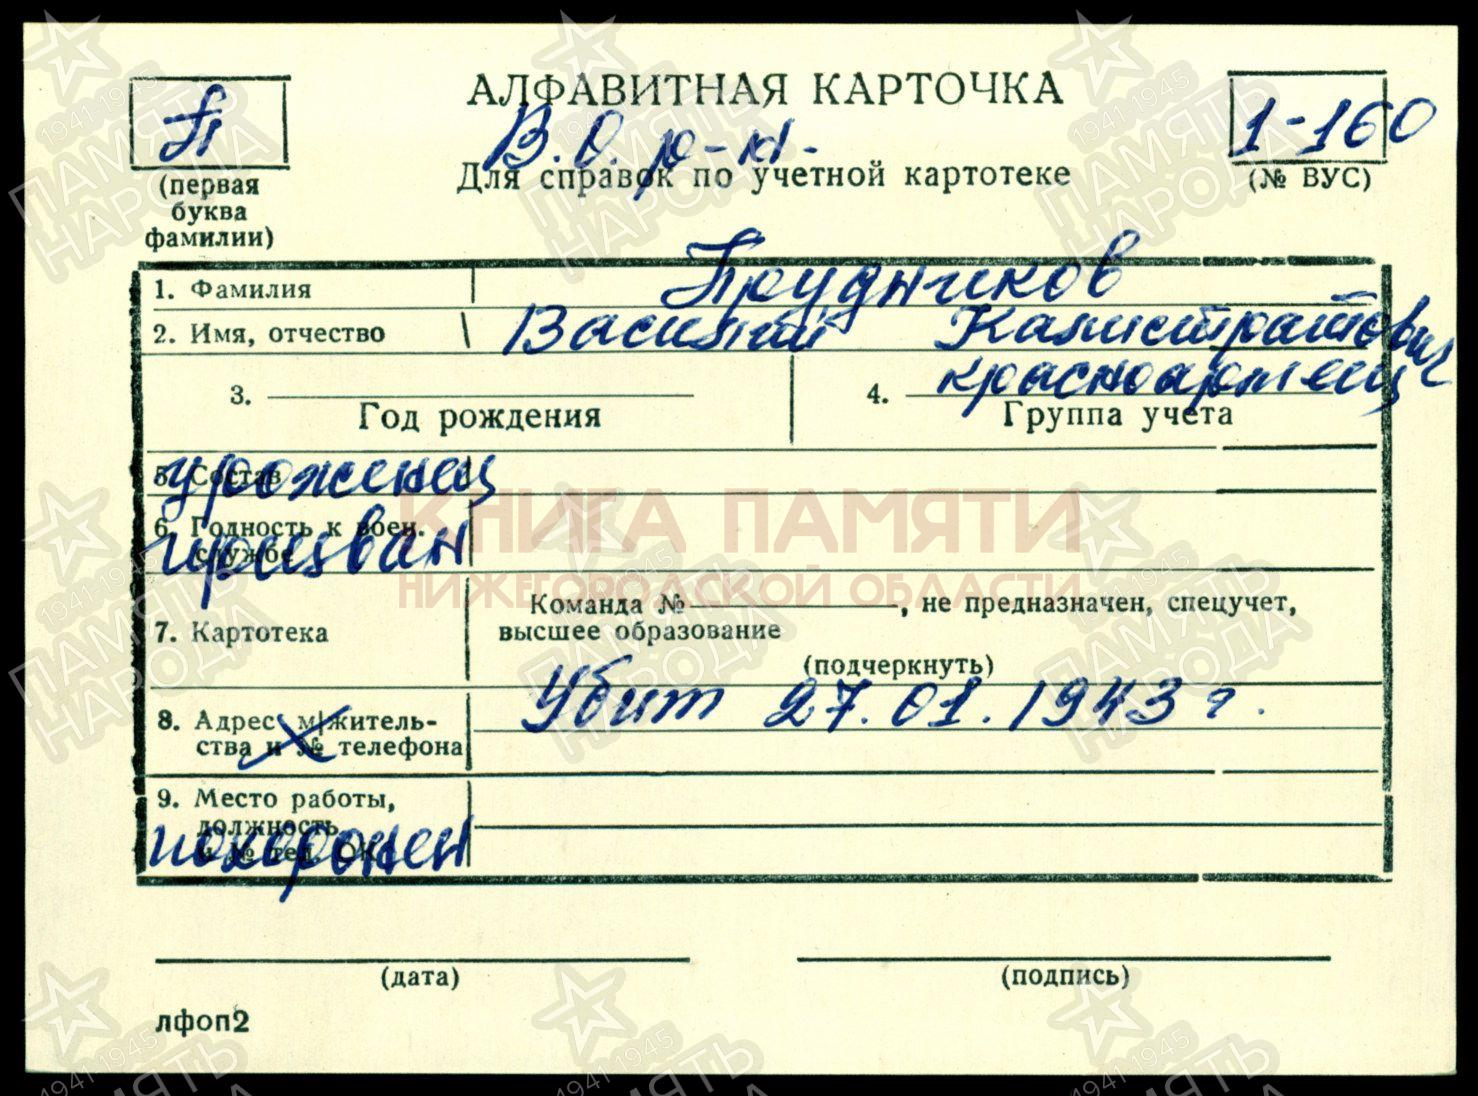 АЛФАВИТНАЯ КАРТОЧКА
П
В.О. р-н.
1-160
Для справок по учетной картотеке
(первая
буква
фамилии)
(№ ВУС)
1. Фамилия Прудников
2. Имя, отчество Василий Калистратович
красноармеец
3.
4.
Год рождения
Группа учета
5. Состав
уроженец
6. Годность к воен.
службе
призван
7. Картотека
Команда № , не предназначен, спецучет,
высшее образование
(подчеркнуть)
8. Адрес м/житель-
ства и № телефона
Убит 27.01.1943 г.
9. Место работы,
должность
и № тел. ОК
похоронен
(дата)
(подпись)
лфоп2
КНИГА ПАМЯТИ
НИЖЕГОРОДСКОЙ ОБЛАСТИ
1941-1945
ПАМЯТЬ
НАРОДА